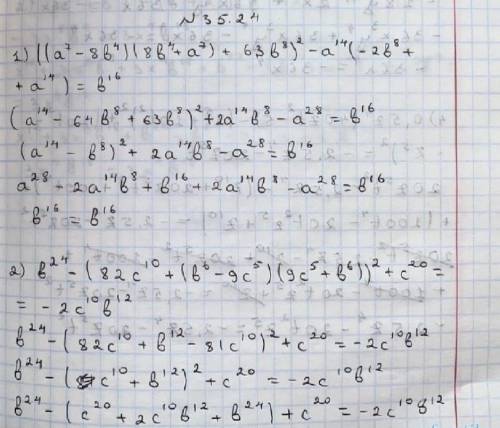 № 35.24
1) ((a⁷ - 8b⁴)(8b⁴ + a⁷) + 63b⁸)² - a¹⁴(-2b⁸ +
+ a¹⁴) = b¹⁶
(a¹⁴ - 64b⁸ + 63b⁸)² + 2a¹⁴b⁸ - a²⁸ = b¹⁶
(a¹⁴ - b⁸)² + 2a¹⁴b⁸ - a²⁸ = b¹⁶
a²⁸ - 2a¹⁴b⁸ + b¹⁶ + 2a¹⁴b⁸ - a²⁸ = b¹⁶
b¹⁶ = b¹⁶
2) b²⁴ - (82c¹⁰ + (b⁶ - 9c⁵)(9c⁵ + b⁶))² + c²⁰ =
= - 2c¹⁰b¹²
b²⁴ - (82c¹⁰ + b¹² - 81c¹⁰)² + c²⁰ = -2c¹⁰b¹²
b²⁴ - (c¹⁰ + b¹²)² + c²⁰ = -2c¹⁰b¹²
b²⁴ - (c²⁰ + 2c¹⁰b¹² + b²⁴) + c²⁰ = -2c¹⁰b¹²